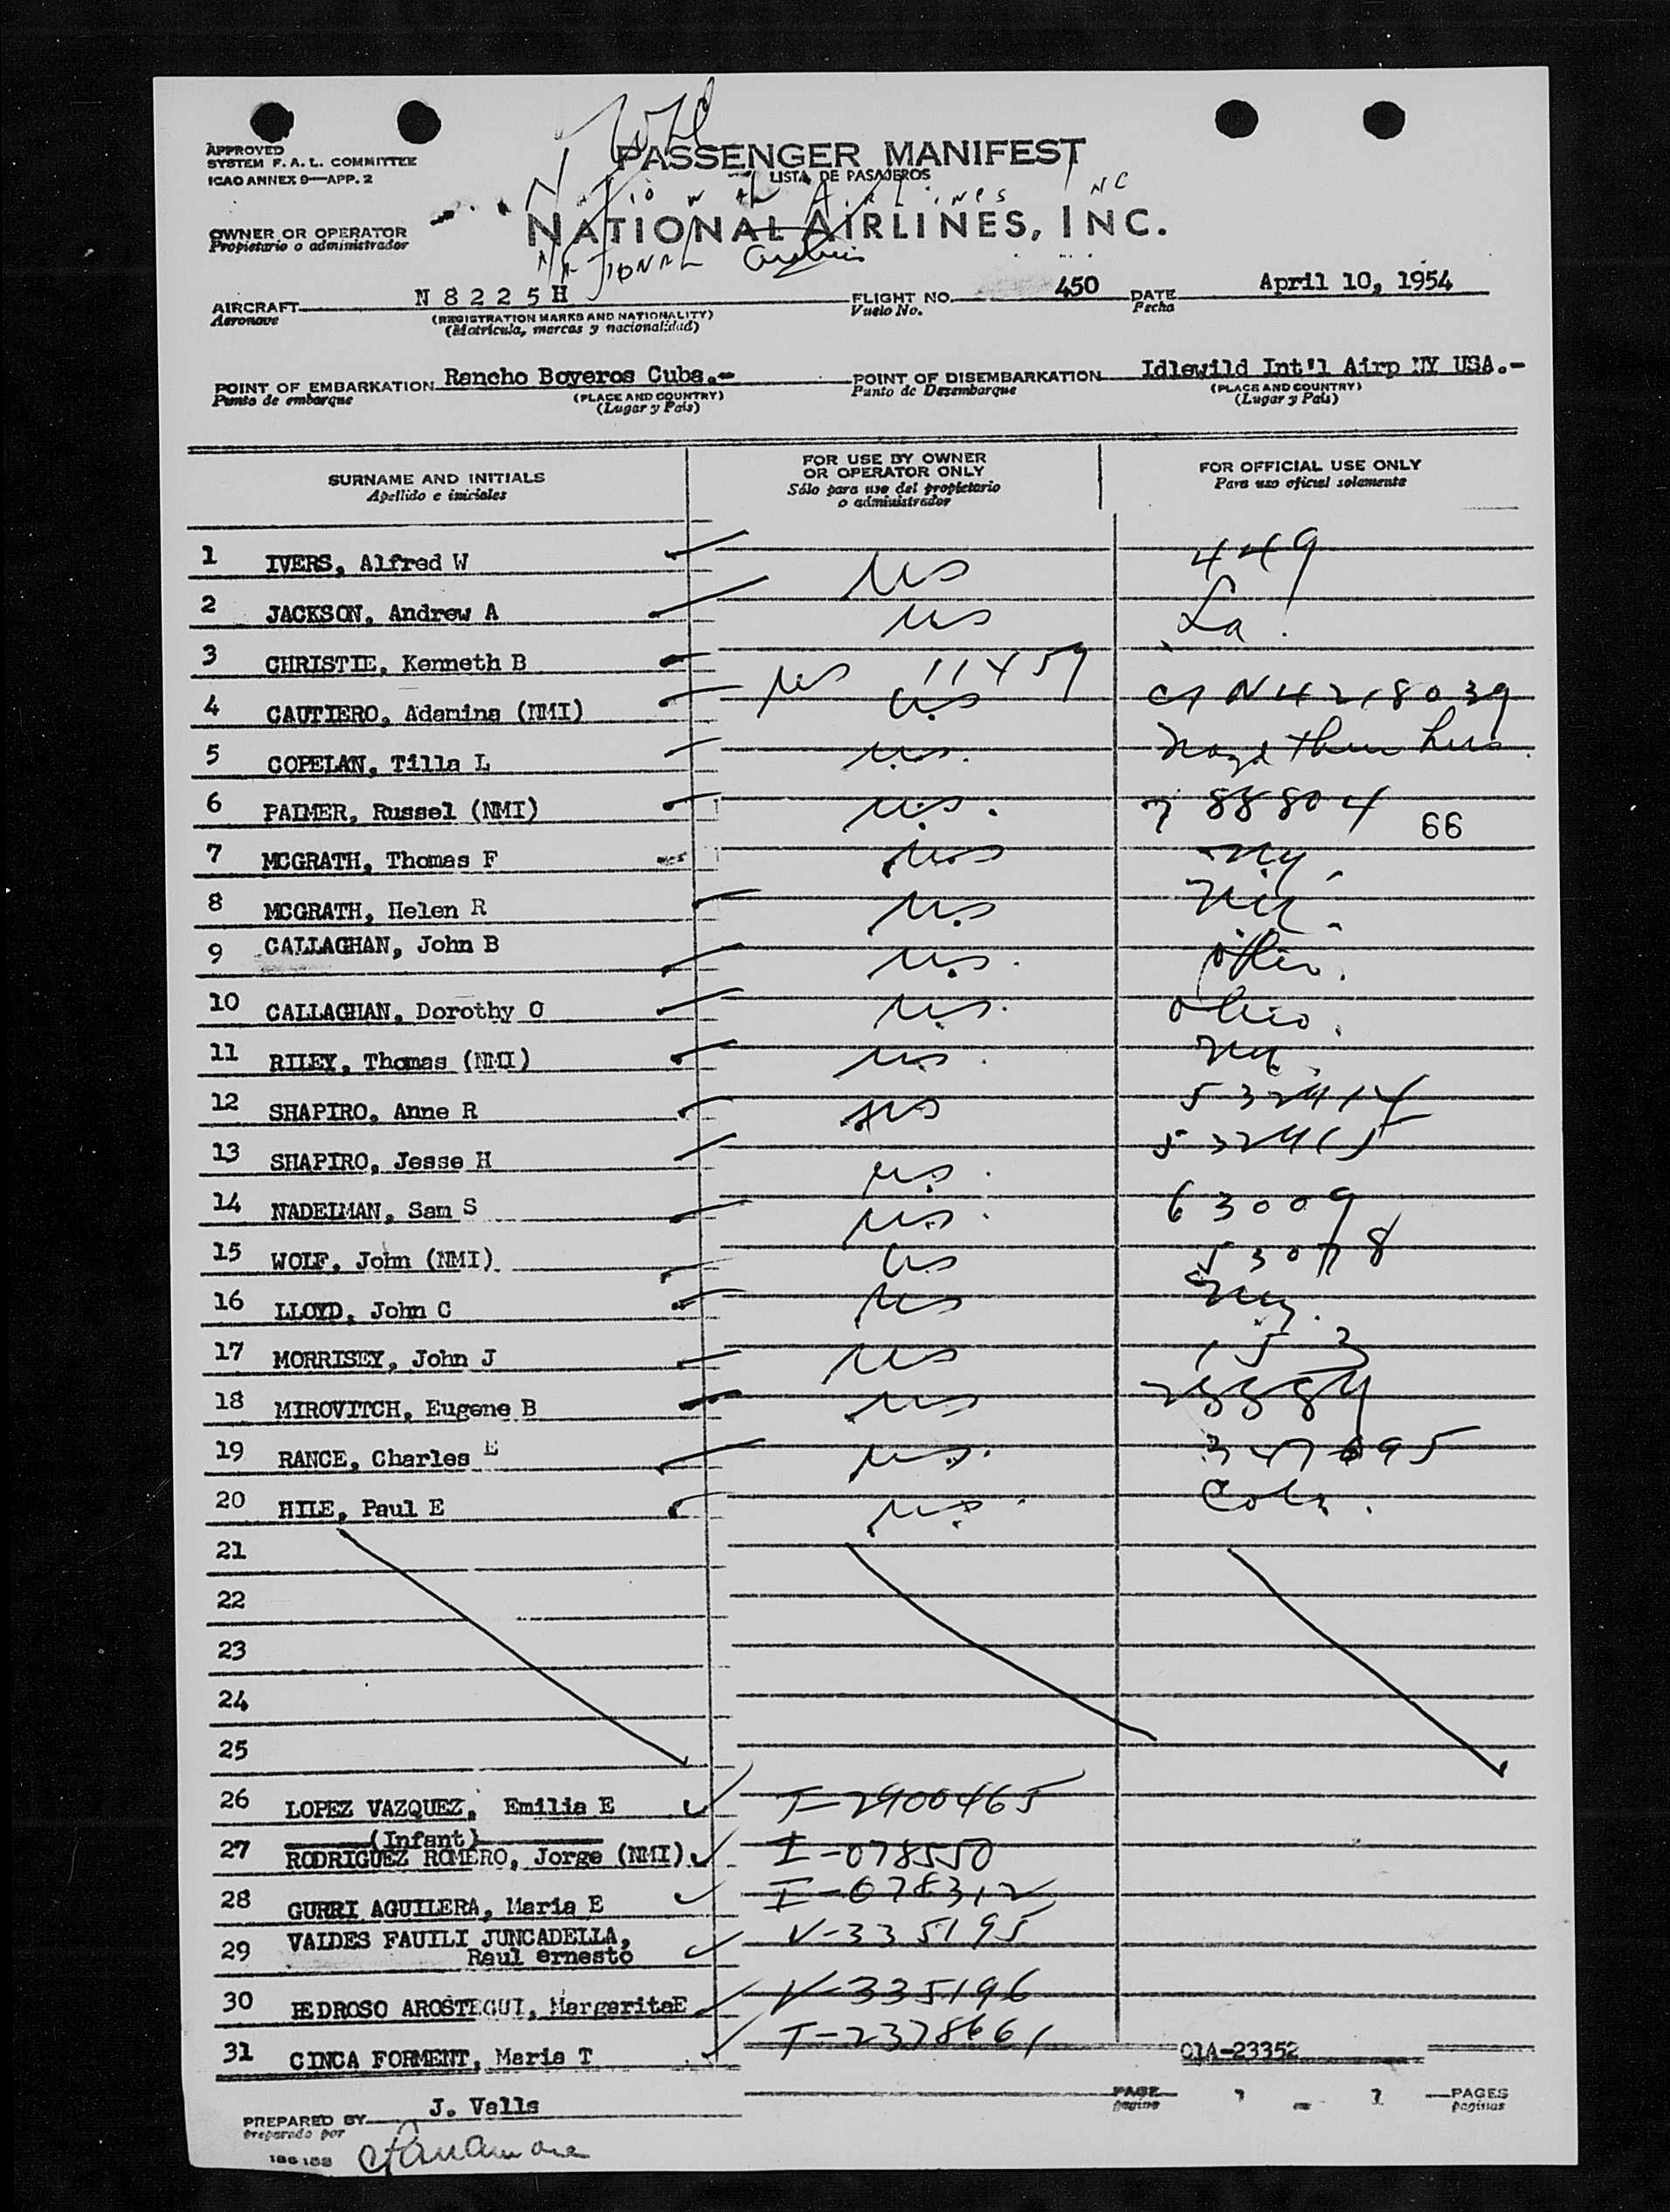 APPROVED
SYSTEM F. A. L. COMMITTEE
ICAO ANNEX 9—APP. 2
PASSENGER MANIFEST
LISTA DE PASAJEROS
OWNER OR OPERATOR
Propietario o administrador
NATIONAL AIRLINES, INC.
NATIONAL
AIRCRAFT N 8 2 2 5 H FLIGHT NO. 450 DATE April 10, 1954
Aeronave (REGISTRATION MARKS AND NATIONALITY) Vuelo No. Fecha
(Matricula, marcas y nacionalidad)
POINT OF EMBARKATION Rancho Boyeros Cuba.- POINT OF DISEMBARKATION Idlewild Int'l Airp NY USA.-
Punto de embarque (PLACE AND COUNTRY) Punto de Desembarque (PLACE AND COUNTRY)
(Lugar y Pais) (Lugar y Pais)
SURNAME AND INITIALS FOR USE BY OWNER OR OPERATOR ONLY FOR OFFICIAL USE ONLY
Apellido e iniciales Sólo para uso del propietario o administrador Para uso oficial solamente
1 IVERS, Alfred W us 449
2 JACKSON, Andrew A us La.
3 CHRISTIE, Kenneth B us 11459
4 CAUTIERO, Adamina (NMI) us N4218039
5 COPELAN, Tilla L u.s.
6 PALMER, Russel (NMI) u.s. 788804
66
7 MCGRATH, Thomas F us NY
8 MCGRATH, Helen R u.s NY.
9 CALLAGHAN, John B u.s. Ohio.
10 CALLAGHAN, Dorothy O u.s. Ohio.
11 RILEY, Thomas (NMI) us. NY.
12 SHAPIRO, Anne R us 532414
13 SHAPIRO, Jesse H u.s. 532415
14 NADELMAN, Sam S u.s. 63009
15 WOLF, John (NMI) us 53078
16 LLOYD, John C us NY.
17 MORRISEY, John J us 153
18 MIROVITCH, Eugene B us
19 RANCE, Charles E u.s. 347695
20 HILE, Paul E u.s.
21
22
23
24
25
26 LOPEZ VAZQUEZ, Emilia E T-2900465
(Infant)
27 RODRIGUEZ ROMERO, Jorge (NMI) I-078550
28 GURRI AGUILERA, Maria E I-078312
29 VALDES FAUILI JUNCADELLA, V-335195
Raul ernesto
30 PEDROSO AROSTEGUI, MargaritaE V-335196
31 CINCA FORMENT, Maria T T-2378661
01A-23352
PREPARED BY J. Valls PAGE 1 - 1 PAGES
preparado por pagina paginas